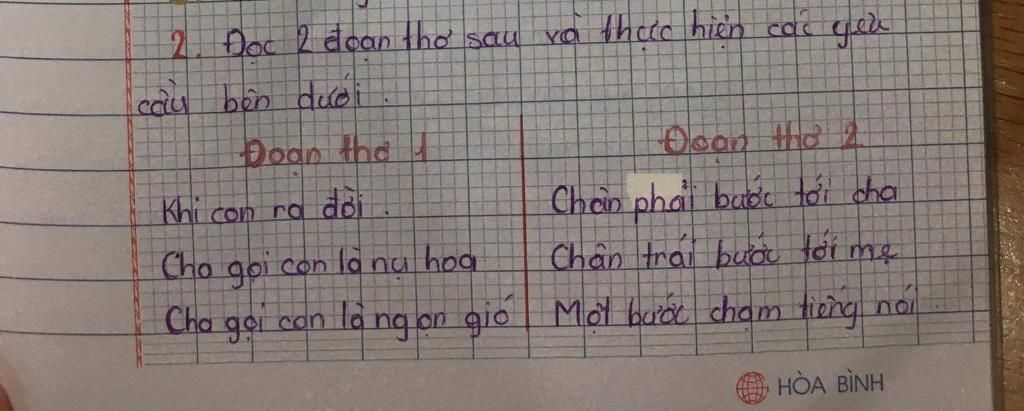 2. Đọc 2 đoạn thơ sau và thực hiện các yêu
cầu bên dưới.
Đoạn thơ 1
Khi con ra đời.
Cha gọi con là nụ hoa
Cha gọi con là ngọn gió
Đoạn thơ 2
Chân phải bước tới cha
Chân trái bước tới mẹ
Một bước chạm tiếng nói
HÒA BÌNH